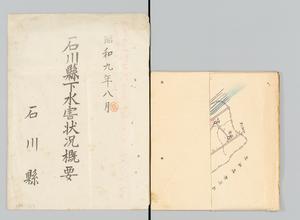 昭和九年八月
石川縣下水害狀況概要
石川縣